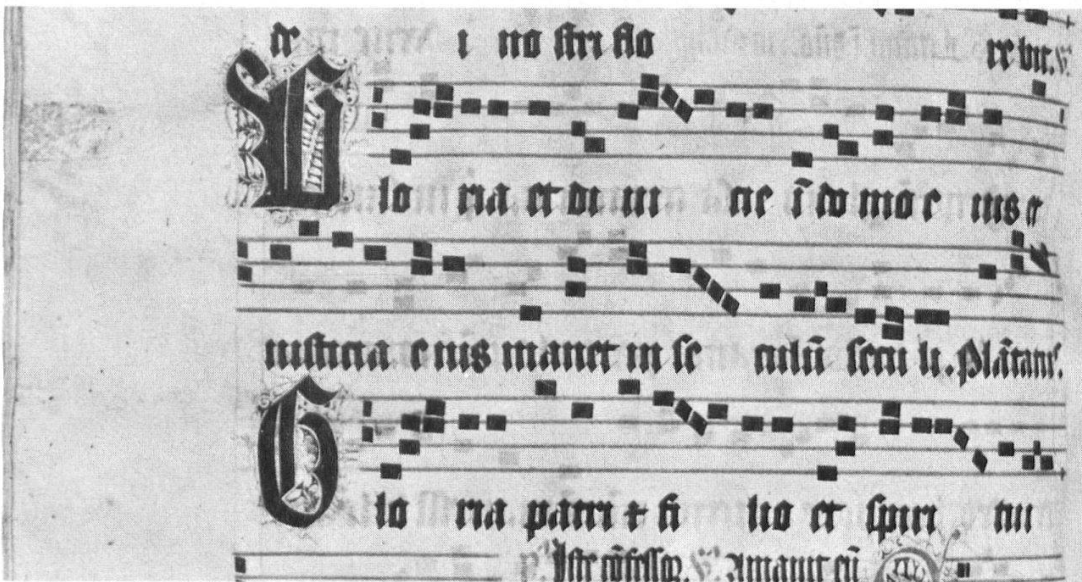 de i no stri flo re bit. v̄.
Glo ria et diui ne ī do mo e ius et
iusticia e ius manet in se culū secu li. Plātat9.
Glo ria patri et fi lio et spiri tui
Iste cōfessor. Amauit eū